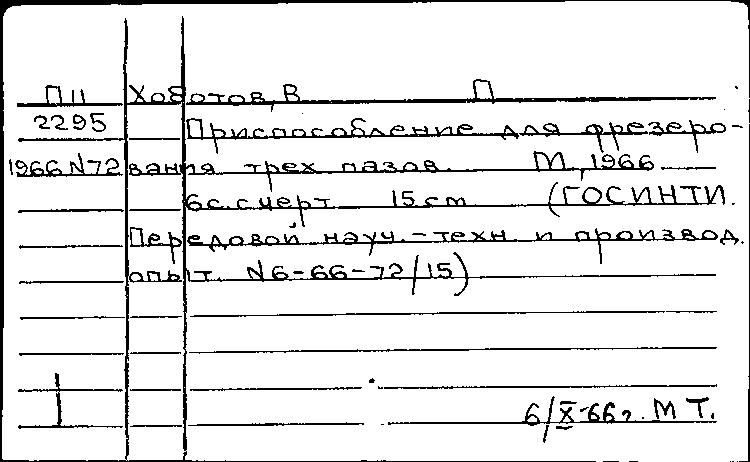 П11 Хоботов, В П
2295 Приспособление для фрезеро-
1966 N72 вания трех пазов. М, 1966.
6с.с черт 15 cm (ГОСИНТИ.
Передовой науч.-техн и производ.
опыт. N6-66-72/15)
6/X-66г. М Т.